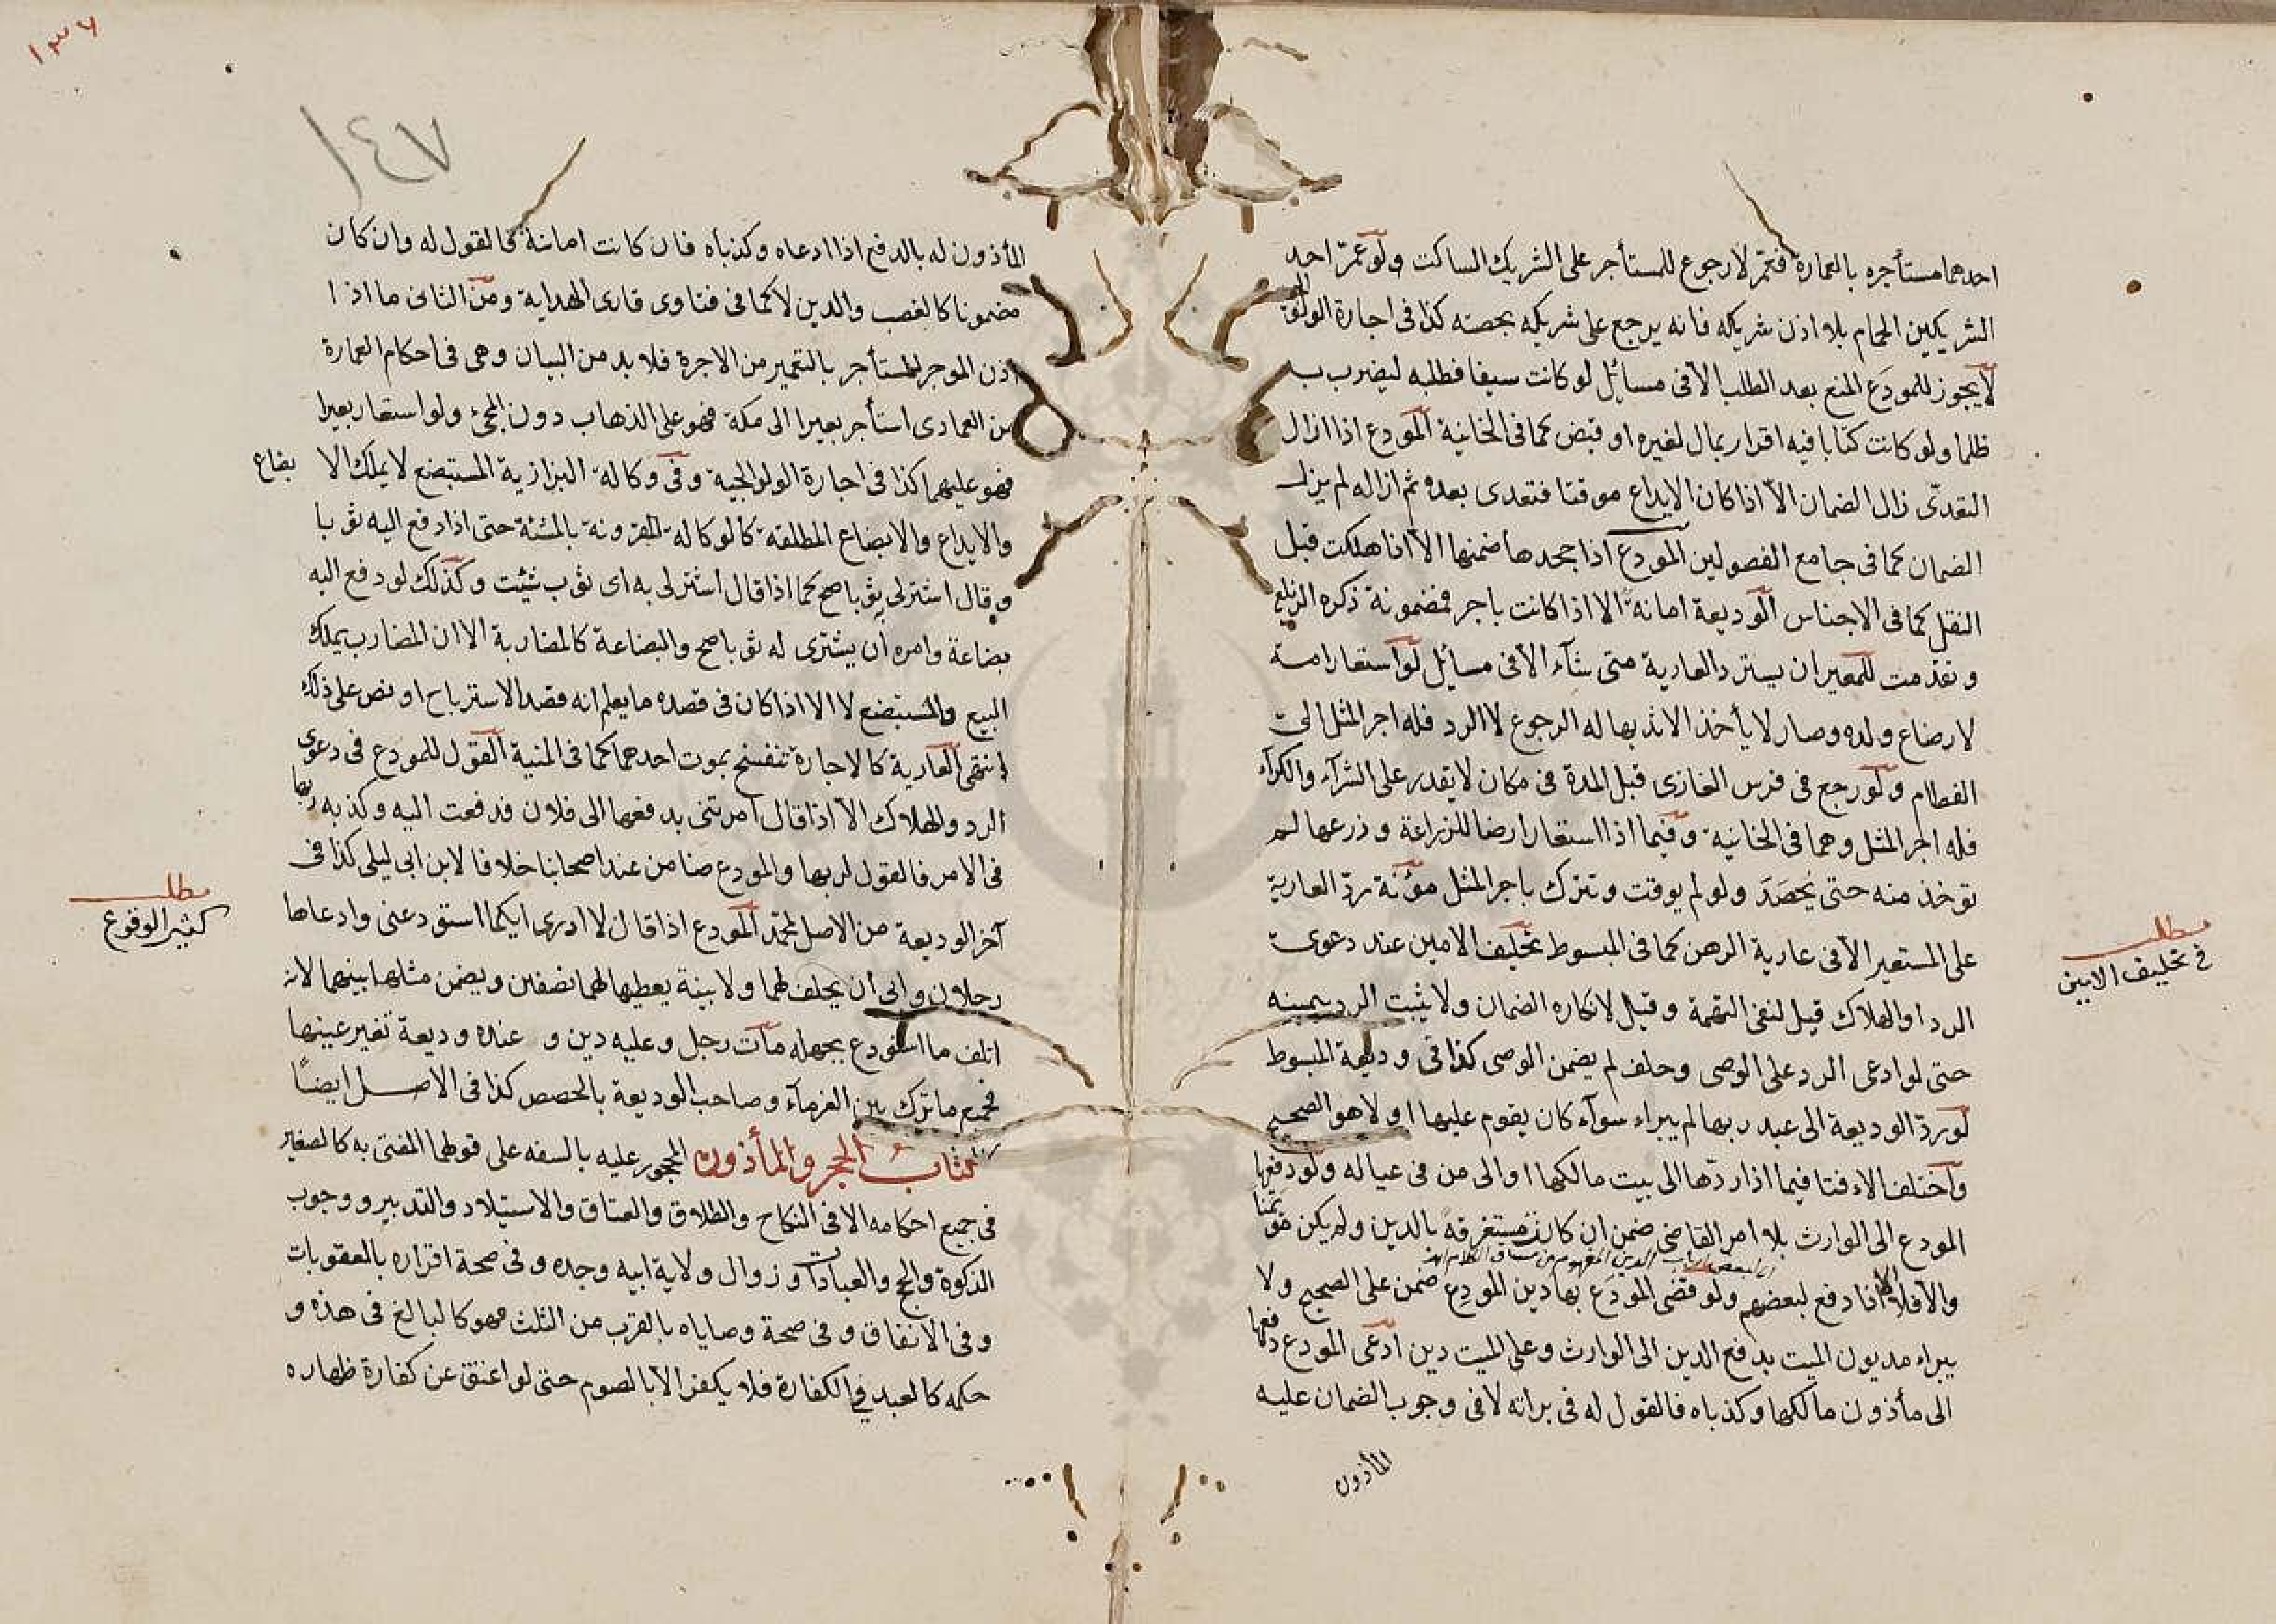 احدهما مستأجره بالعمارة فعمّر لا رجوع للمستأجر على الشريك الساكت ولو عمّر احد
الشريكين الحمام بلا اذن شريكه فانه يرجع على شريكه بحصته كذا فى اجارة الولوالجية
لا يجوز للمودَع المنع بعد الطلب الا فى مسائل لو كانت سيفا فطلبه ليضرب به
ظلما ولو كانت كتابا فيه اقرار بمال لغيره او قبض كما فى الخانية المودع اذا ازال
التعدّى زال الضمان الّا اذا كان الايداع موقتا فتعدى بعده ثم ازاله لم يزل
الضمان كما فى جامع الفصولين المودع اذا جحدها ضمنها الّا اذا هلكت قبل
النقل كما فى الاجناس الوديعة امانة الا اذا كانت باجر فمضمونة ذكره الزيلعى
وتقدمت للمعير ان يسترد العارية متى شآء الا فى مسائل لو استعار امة
لارضاع ولده وصار لا يأخذ الا ثديها له الرجوع لا الرد فله اجر المثل الى
الفطام ولو رجع فى فرس الغازى قبل المدة فى مكان لا يقدر على الشرآء والكرآء
فله اجر المثل وهما فى الخانية وفيما اذا استعار ارضا للزراعة وزرعها لم
تؤخذ منه حتى يُحصَدَ ولو لم يوقت وتترك باجر المثل مؤنة ردّ العارية
على المستعير الا فى عارية الرهن كما فى المبسوط تحليف الامين عند دعوى
الرد او الهلاك قيل لنفى التهمة وقيل لانكاره الضمان ولا يثبت الرد بيمينه
حتى لو ادعى الرد على الوصى وحلف لم يضمن الوصى كذا فى وديعة المبسوط
لو ردّ الوديعة الى عبد ربها لم يبراء سوآء كان يقوم عليها او لا هو الصحيح
وآختلف الافتا فيما اذا ردّها الى بيت مالكها او الى من فى عياله ولو دفعها
المودع الى الوارث بلا امر القاضى ضمن ان كانت مستغرقة بالدين ولم يكن مؤتمنا
والا فلا الا اذا دفع لبعضهم ولو قضى المودَع بها دَين المودِع ضمن على الصحيح ولا
يبراء مديون الميت بدفع الدين الى الوارث وعلى الميت دين ادّعى المودع دفعها
الى مأذون مالكها وكذباه فالقول له فى براته لا فى وجوب الضمان عليه
المأذون
مطلب
فى تحليف الامين
١٣٦
١٤٧
المأذون له بالدفع اذا ادعاه وكذباه فان كانت امانة فالقول له وان كان
مضمونا كالغصب والدين لا كما فى فتاوى قارى الهداية ومن الثانى ما اذا
اذن الموجر للمستأجر بالتعمير من الاجرة فلا بد من البيان وهى فى احكام العمارة
من العمادى استأجر بعيرا الى مكة فهو على الذهاب دون المجئ ولو استعار بعيرا
فهو عليهما كذا فى اجارة الولوالجية وفى وكالة البزازية المستبضع لا يملك الا بضاع
والايداع والابضاع المطلقة كالوكالة المقرونة بالمشئة حتى اذا دفع اليه ثوبا
وقال اشتر لى ثوبا صح كما اذا قال اشتر لى به اى ثوب شئت وكذلك لو دفع اليه
بضاعة وامره أن يشترى له ثوبا صح والبضاعة كالمضاربة الا ان المضارب يملك
البيع والمستبضع لا الا اذا كان فى قصده ما يعلم انه قصد الاسترباح او نص على ذلك
انتهى العارية كالاجارة تنفسخ بموت احدهما كما فى المنية القول للمودع فى دعوى
الرد والهلاك الّا اذا قال امرتنى بدفعها الى فلان فدفعت اليه وكذبه ربها
فى الامر فالقول لربها والمودع ضامن عند اصحابنا خلافا لابن ابى ليلى كذا فى
آخر الوديعة من الاصل لمحمد المودع اذا قال لا ادرى ايكما استودعنى وادعاها
رجلان وابى أن يحلف لهما ولا بينة يعطيها لهما نصفين ويضمن مثلها بينهما لانه
اتلف ما استودع بجهله مات رجل وعليه دين و عنده وديعة تغير عينها
فجميع ما ترك بين الغرمآء وصاحب الوديعة بالحصص كذا فى الاصل ايضاً
كتابُ الحجر والمأذون المحجور عليه بالسفه على قولهما المفتى به كالصغير
فى جميع احكامه الا فى النكاح والطلاق والعتاق والاستيلاد والتدبير ووجوب
الذكوة والحج والعبادات وزوال ولاية ابيه وجده وفى صحة اقراره بالعقوبات
وفى الانفاق وفى صحة وصاياه بالقرب من الثلث فهو كالبالغ فى هذه و
حكمه كالعبد فى الكفارة فلا يكفر الّا بالصوم حتى لو اعتق عن كفارة ظهاره
مطلب
كثير الوقوع